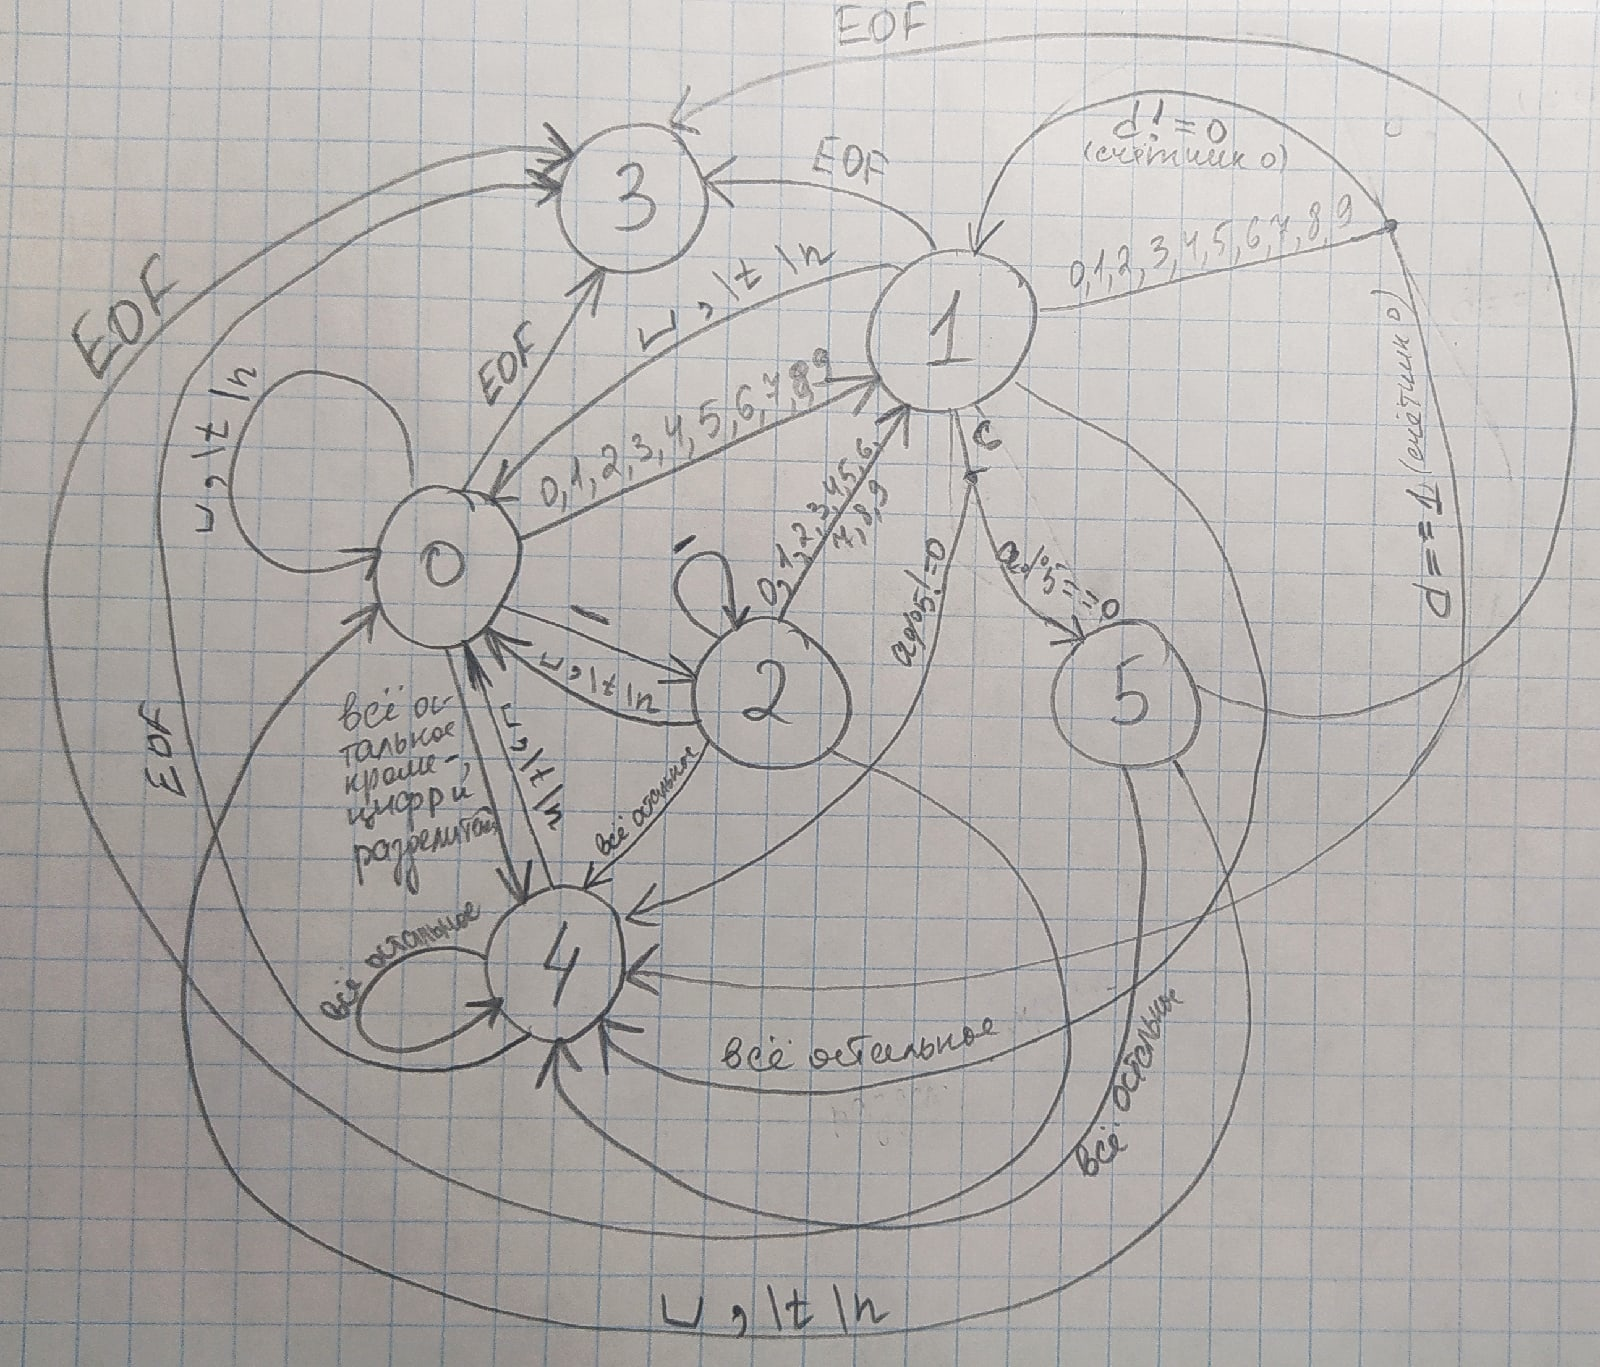 EOF
d!=0
(счётчик 0)
EOF
3
0,1,2,3,4,5,6,7,8,9
␣ , \t \n
1
EOF
EOF
d==1 (счётчик 0)
␣ , \t \n
0,1,2,3,4,5,6,7,8,9
c
0,1,2,3,4,5,6,
7,8,9
a%5!=0
a%5==0
0
-
-
␣ , \t \n
2
5
всё ос-
тальное
кроме -,
цифр и
разделител
␣ , \t \n
EOF
всё остальное
всё остальное
4
всё остальное
всё остальное
␣ , \t \n